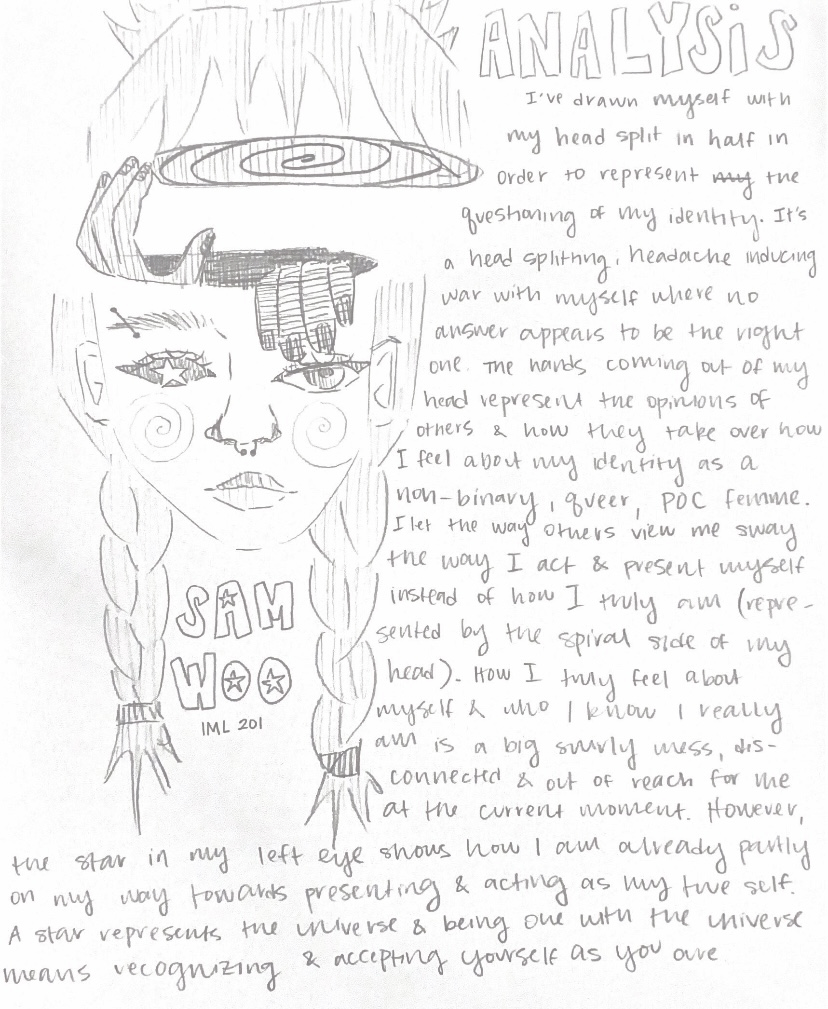 ANALYSiS
I've drawn myself with
my head split in half in
order to represent my the
questioning of my identity. It's
a head splitting, headache inducing
war with myself where no
answer appears to be the right
one. The hands coming out of my
head represent the opinions of
others & how they take over how
I feel about my identity as a
non-binary, queer, POC femme.
I let the way others view me sway
the way I act & present myself
instead of how I truly am (repre-
sented by the spiral side of my
head). How I truly feel about
myself & who I know I really
am is a big swirly mess, dis-
connected & out of reach for me
at the current moment. However,
the star in my left eye shows how I am already partly
on my way towards presenting & acting as my true self.
A star represents the universe & being one with the universe
means recognizing & accepting yourself as you are
SAM
WOO
IML 201